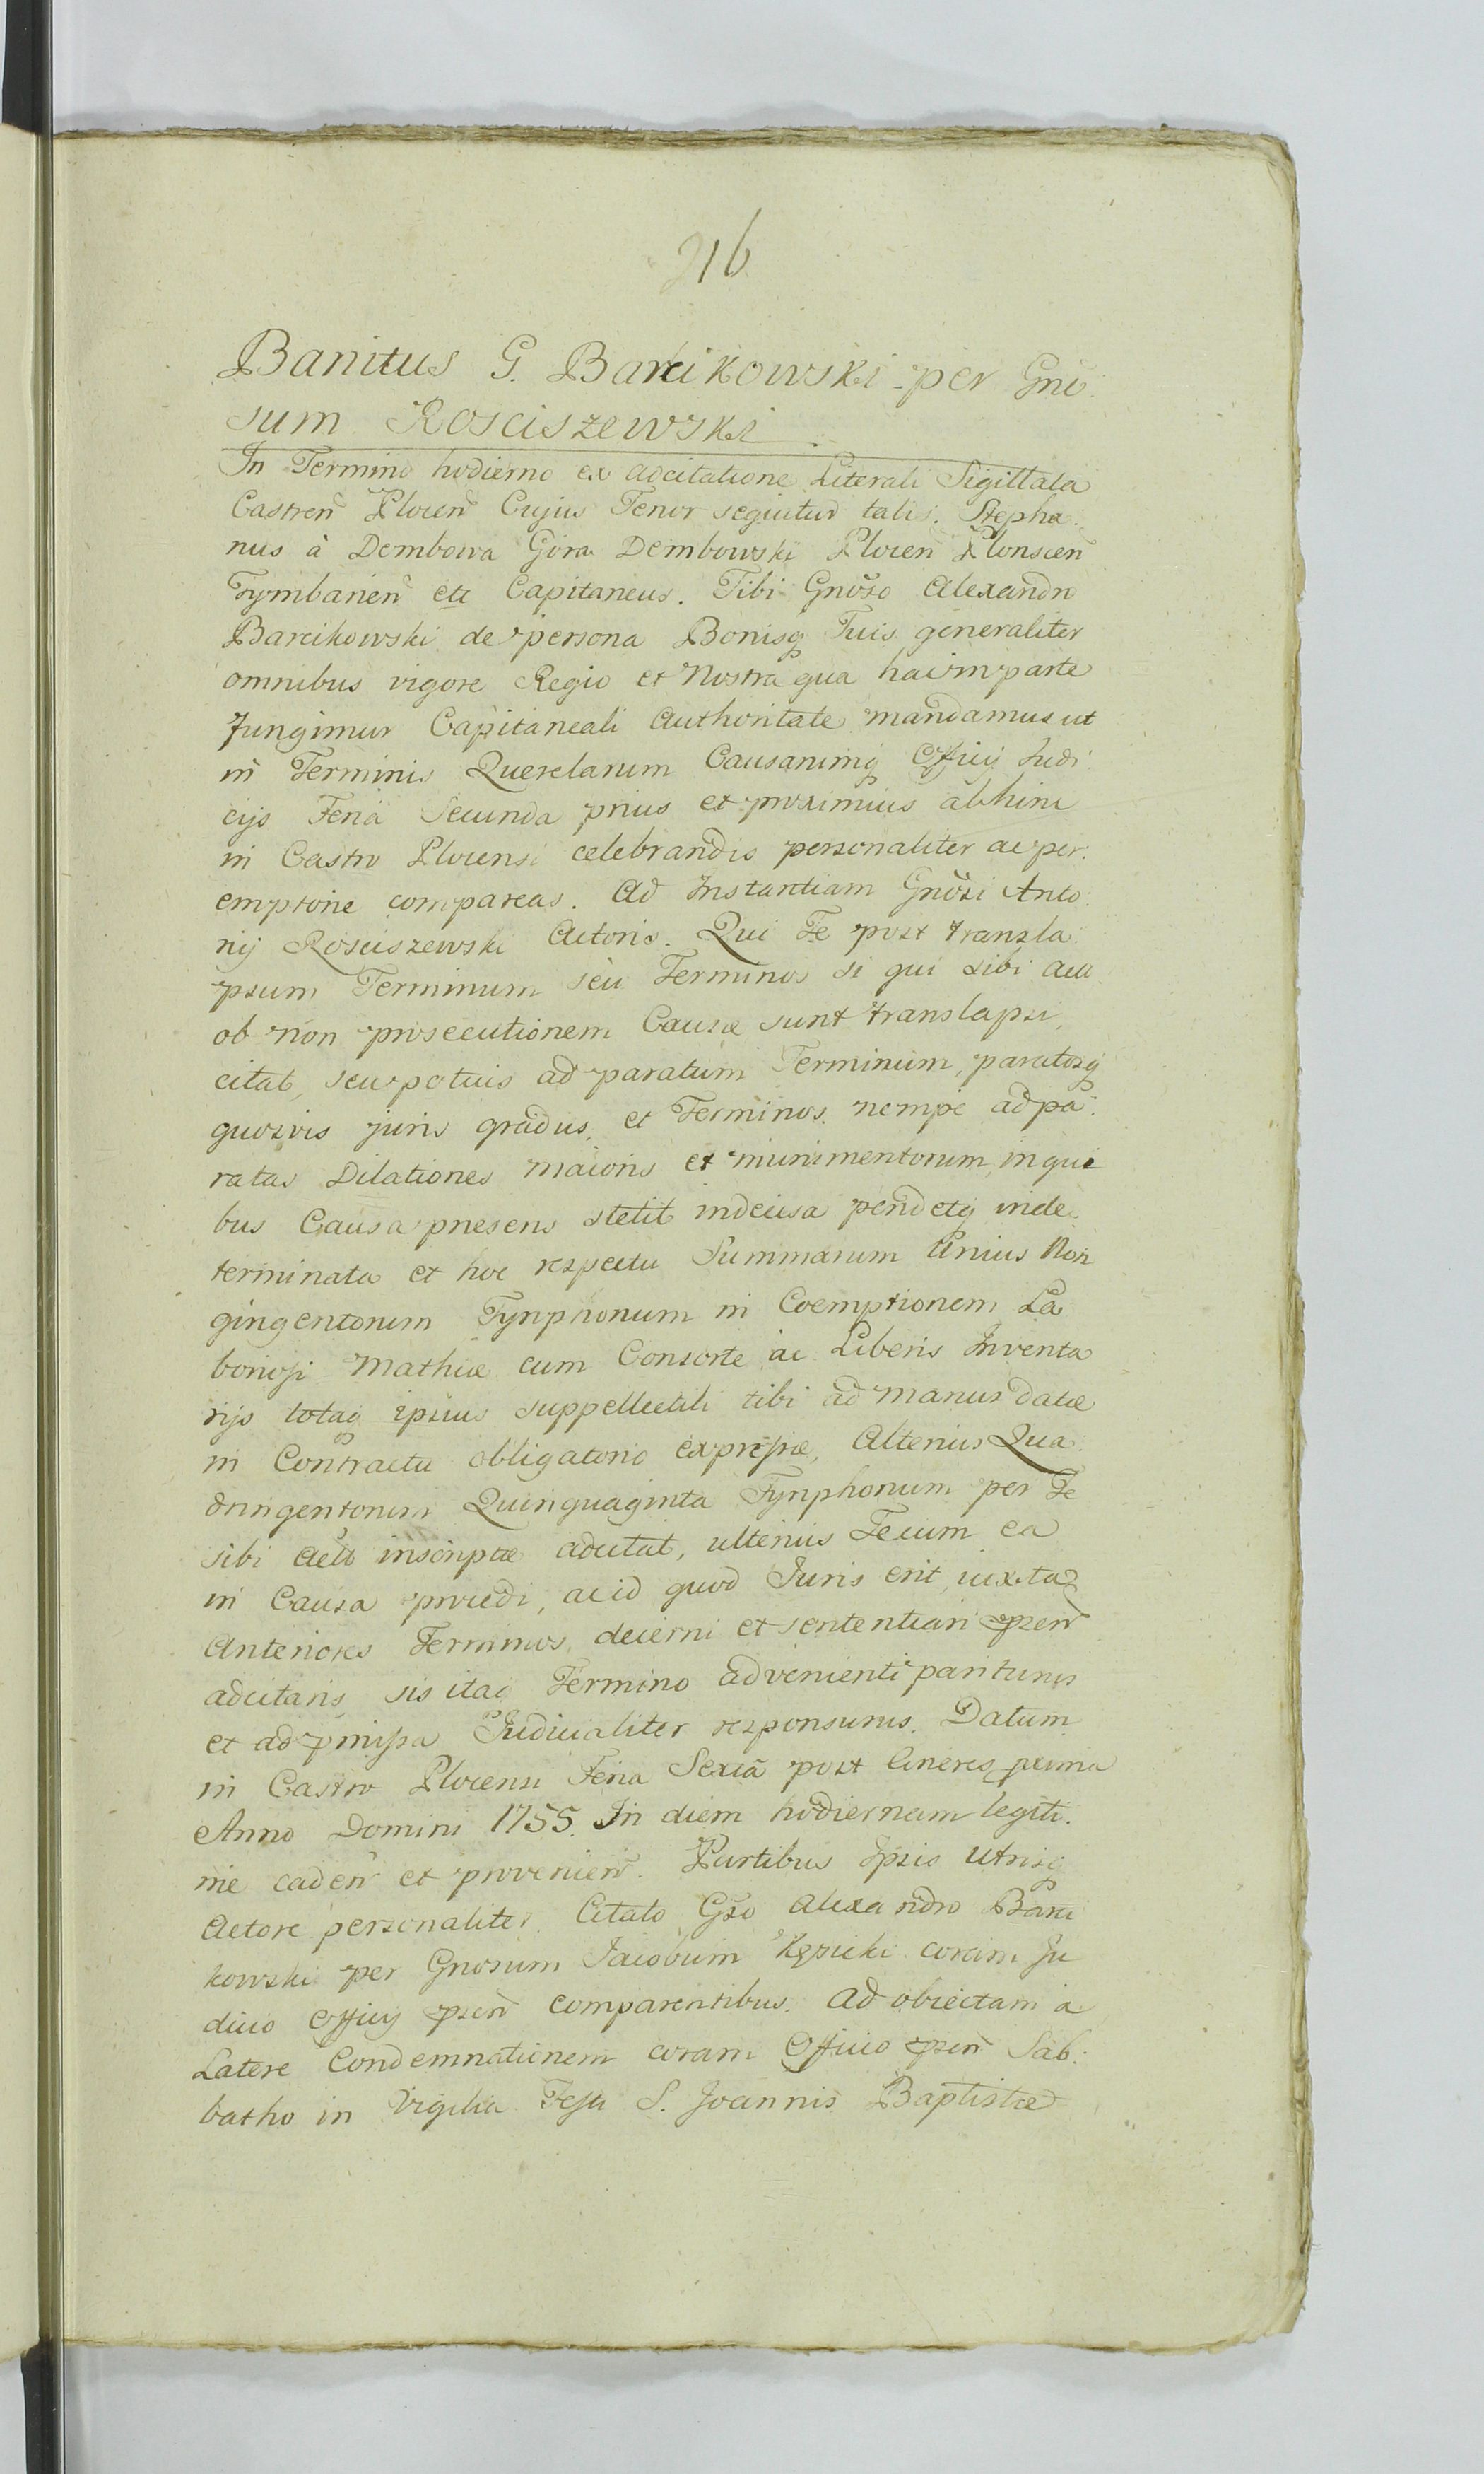 216
Banitus G. Barcikowski per Gnõ
sum Rosciszewski
In Termino hodierno ex adcitatione Literali Sigillata
Castren̄ Plocen̄ Cujus Tenor seqiutur talis. Stepha:
nus à Dembowa Gora Dembowski Plocen̄ Plonscen̄
Tymbarien̄ etc Capitaneus. Tibi Gnõso Alexandro
Barcikowski de persona Bonisq̨ Tuis generaliter
omnibus vigore Regio et Nostra qua hac in parte
fungimur Capitaneali Authoritate mandamus ut
in Terminis Querelarum Causarumq̨ Officij Judi
cijs Feria Secunda prius et proximius abhinc
in Castro Plocensi celebrandis personaliter ac per:
emptorie compareas. Ad Instantiam Gnõsi Anto:
nij Rosciszewski Actoris. Qui Te post transla
psum Terminum seu Terminos si qui sibi acto
ob non prosecutionem Causæ sunt translapsi,
citat, seu potuis ad paratum Terminum, paratosq̨
quosvis juris gradus, et Terminos nempe ad pa:
ratas Dilationes maioris et munimentorum, in qui
bus Causa presens stetit indecisa pendetq̨ inde
terminata et hoc respectu Summarum Unius Non
gingentorum Tynphonum in Coemptionem La
boriosi Mathiæ cum Consorte ac Liberis Inventa
rijs totaq̨ ipsius suppellectili tibi ad manus datæ
in Contractu obligatorio expressæ, Alterius Qua:
dringentorum Quinquaginta Tynphonum per Te
sibi Acto inscriptæ adcitat, ulterius Tecum ea
in Causa procedi, ac id quod Juris erit, iuxta
Anteriores Terminos, decerni et sententiari pzen̄
adcitaris sis itaq̨ Termino advenienti pariturus
et ad pmissa Judicialiter responsurus. Datum
in Castro Plocensi Feria Sexta post Cineres prima
Anno Domini 1755. In diem hodiernam legiti:
me caden̄ et provenien̄. Partibus Ipsis utrisq̨
Actore personaliter Citato Gso Alexandro Barci
kowski per Gnosum Jacobum Kęsicki coram Ju
dicio Officij pzen̄ comparentibus. Ad obiectam a
Latere Condemnationem coram Officio pzen̄ Sab:
batho in Vigilia Festi S. Joannis Baptistæ